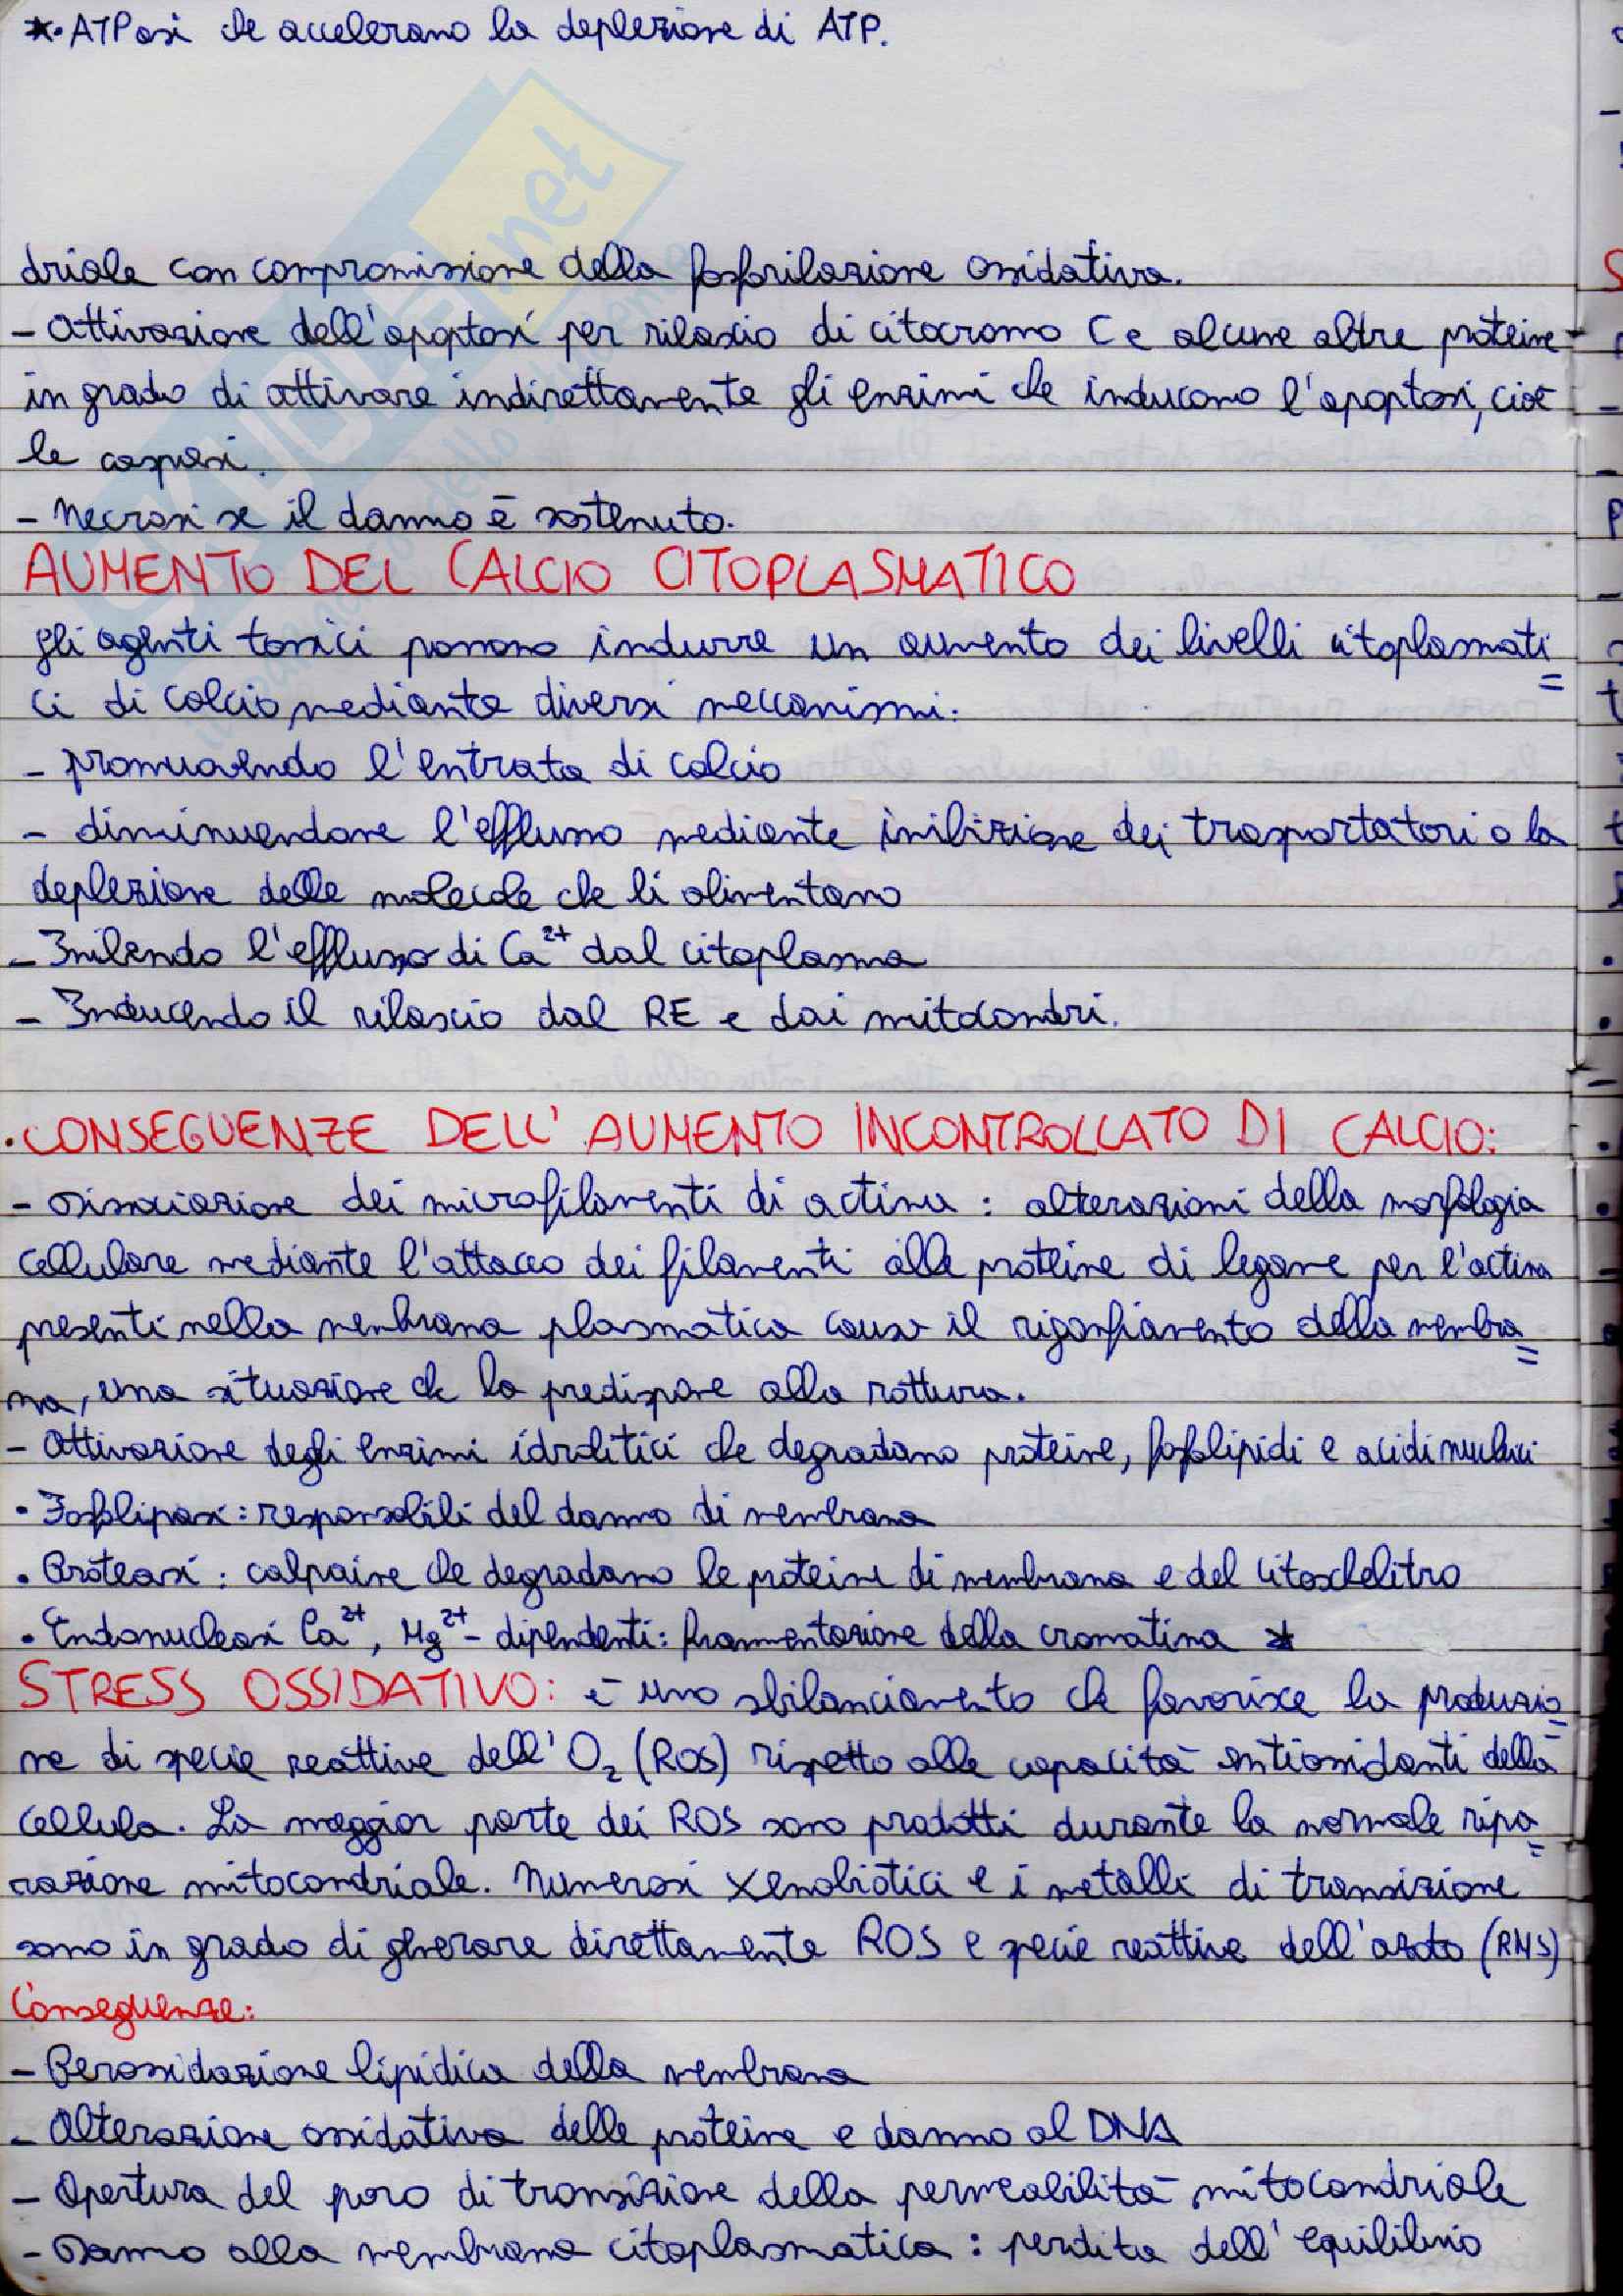 *• ATPasi che accelerano la deplezione di ATP.
driale con compromissione della fosforilazione ossidativa.
- Attivazione dell'apoptosi per rilascio di citocromo C e alcune altre proteine
in grado di attivare indirettamente gli enzimi che inducono l'apoptosi, cioè
le caspasi.
- Necrosi se il danno è sostenuto.
AUMENTO DEL CALCIO CITOPLASMATICO
gli agenti tossici possono indurre un aumento dei livelli citoplasmati=
ci di calcio mediante diversi meccanismi:
- promuovendo l'entrata di calcio
- diminuendone l'efflusso mediante inibizione dei trasportatori o la
deplezione delle molecole che li alimentano
- Inibendo l'efflusso di Ca²⁺ dal citoplasma
- Inducendo il rilascio dal RE e dai mitocondri.
• CONSEGUENZE DELL'AUMENTO INCONTROLLATO DI CALCIO:
- Dissociazione dei microfilamenti di actina: alterazioni della morfologia
cellulare mediante l'attacco dei filamenti alle proteine di legame per l'actina
presenti nella membrana plasmatica causa il rigonfiamento della membra=
na, una situazione che la predispone alla rottura.
- Attivazione degli enzimi idrolitici che degradano proteine, fosfolipidi e acidi nucleici
• Fosfolipasi: responsabili del danno di membrana
• Proteasi: calpaine che degradano le proteine di membrana e del citoscheletro
• Endonucleasi Ca²⁺, Mg²⁺- dipendenti: frammentazione della cromatina *
STRESS OSSIDATIVO: è uno sbilanciamento che favorisce la produzio=
ne di specie reattive dell'O₂ (ROS) rispetto alle capacità antiossidanti della
cellula. La maggior parte dei ROS sono prodotti durante la normale ripa=
razione mitocondriale. Numerosi xenobiotici e i metalli di transizione
sono in grado di generare direttamente ROS e specie reattive dell'azoto (RNS)
Conseguenze:
- Perossidazione lipidica della membrana
- Alterazione ossidativa delle proteine e danno al DNA
- Apertura del poro di transizione della permeabilità mitocondriale
- Danno alla membrana citoplasmatica: perdita dell'equilibrio